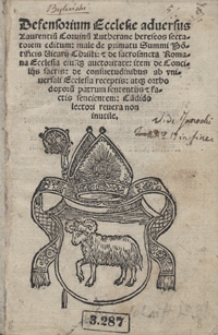 Defensorium Ecclesie adversus
Laurentiū Corvinū Lutherane hereseos secta-
torem editum: male de primatu Summi Pō-
tificis Vicarij Christi: & de sacrosancta Roma-
na Ecclesia eiusq; auctoritate: item de Conci-
lijs sacris: de consuetudinibus ab vni-
versali Ecclesia receptis: atq; ortho
doxorū patrum sententijs & fa-
ctis sencientem: Cādido
lectori revera non
inutile.
3.287